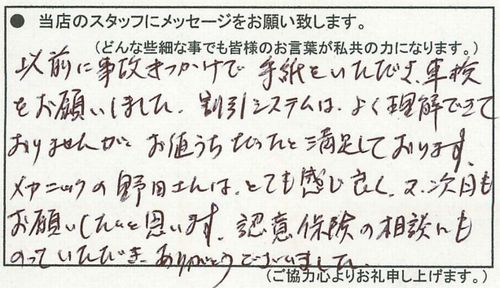 ● 当店のスタッフにメッセージをお願い致します。
(どんな些細な事でも皆様のお言葉が私共の力になります。)
以前に事故きっかけで 手紙をいただき、車検
をお願いしました。割引システムは、よく理解できて
おりませんが お値うちだったと満足しております。
メカニックの野田さんは、とても感じ良く、又、次回も
お願いしたいと思います。認意保険の相談にも
のっていただき ありがとうございました。
(ご協力心よりお礼申し上げます。)